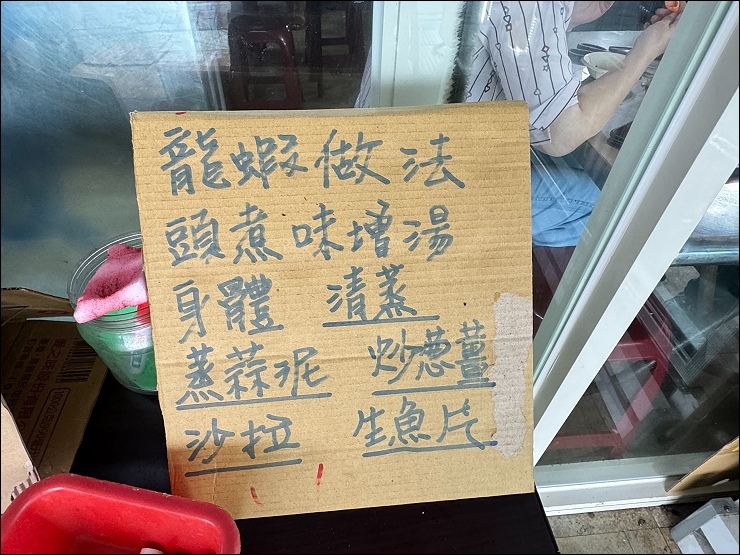 龍蝦做法
頭煮味增湯
身體 清蒸
蒸蒜泥 炒蔥薑
沙拉 生魚片